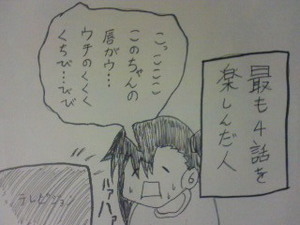 最も４話を
楽しんだ人
こっこここ
このちゃんの
唇がウ…
ウチのくくく
くちび…びび
ハァハァ
テレビジョン